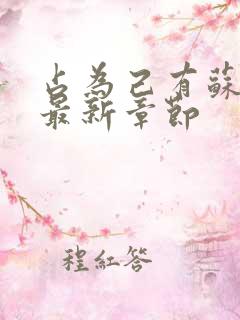 占為己有蘇
最新章節
程紅答